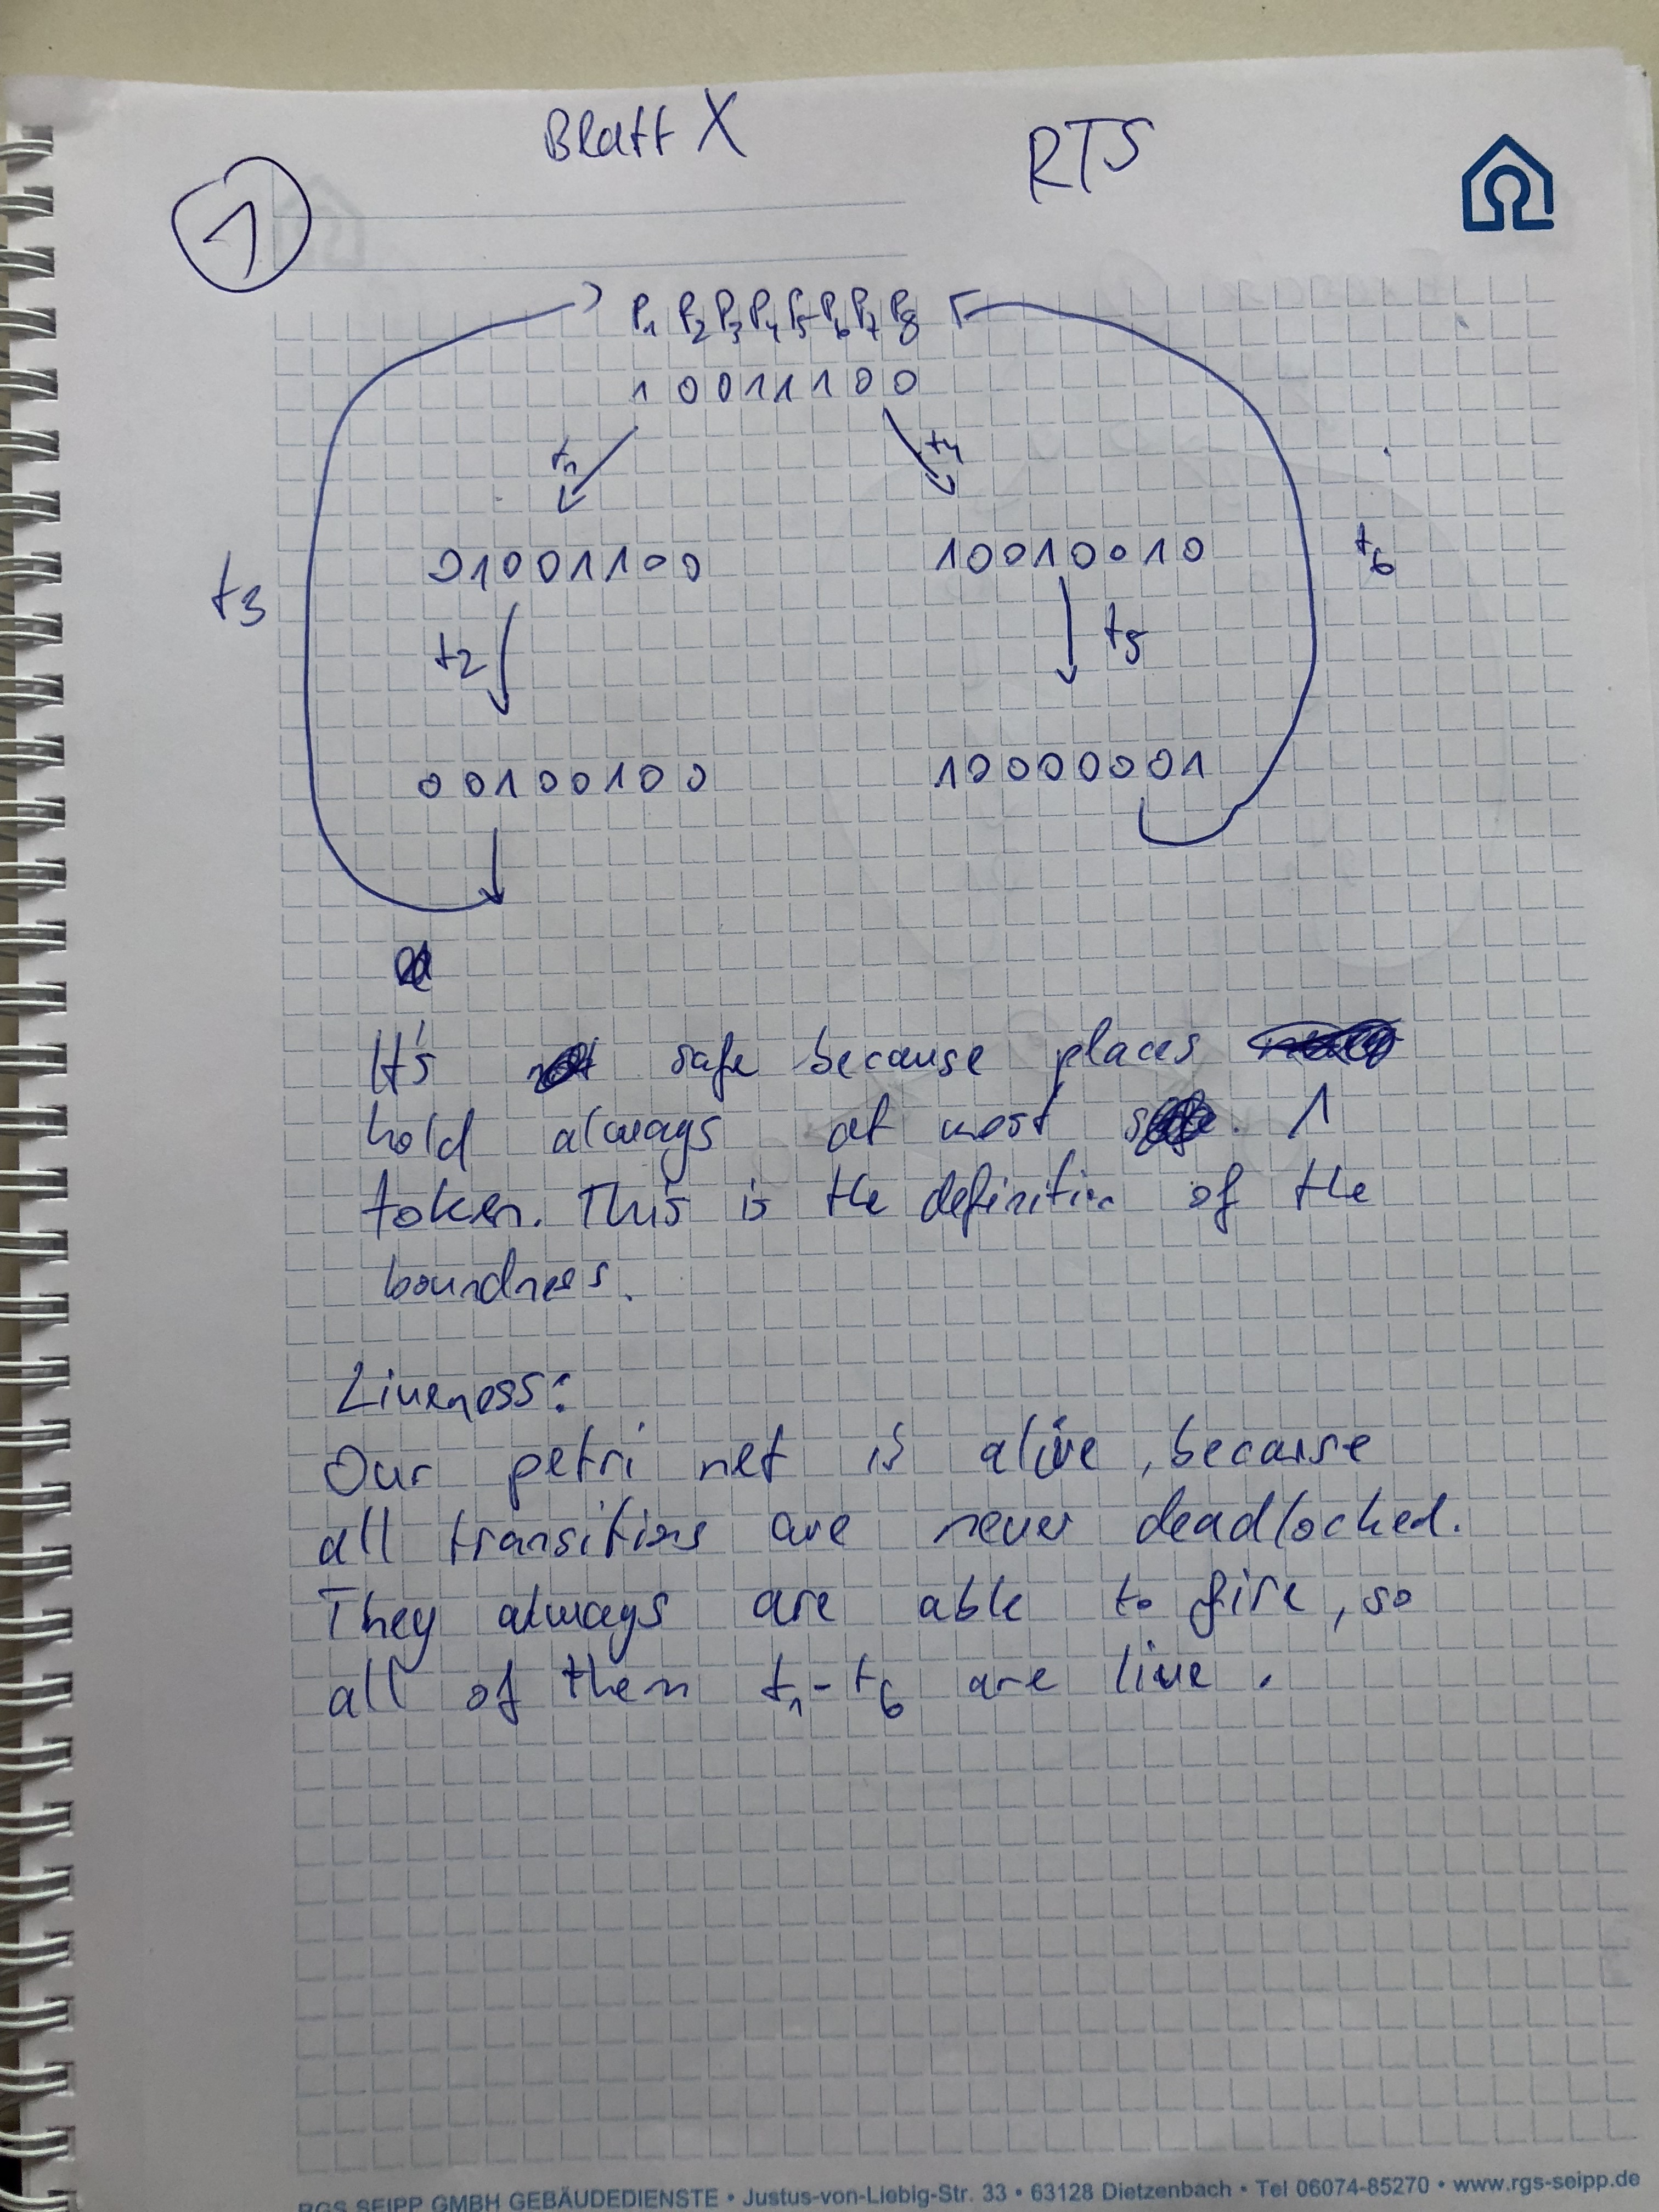 Blatt X RTS
1
P1 P2 P3 P4 P5 P6 P7 P8
1 0 0 1 1 1 0 0
t1 t4
0 1 0 0 1 1 0 0 1 0 0 1 0 0 1 0 t6
t3
t2 t5
0 0 1 0 0 1 0 0 1 0 0 0 0 0 0 1
It's safe because places
hold always at most 1
token. This is the definition of the
boundness.
Liveness:
Our petri net is alive, because
all transitions are never deadlocked.
They always are able to fire, so
all of them t1-t6 are live.
RGS SEIPP GMBH GEBÄUDEDIENSTE • Justus-von-Liebig-Str. 33 • 63128 Dietzenbach • Tel 06074-85270 • www.rgs-seipp.de